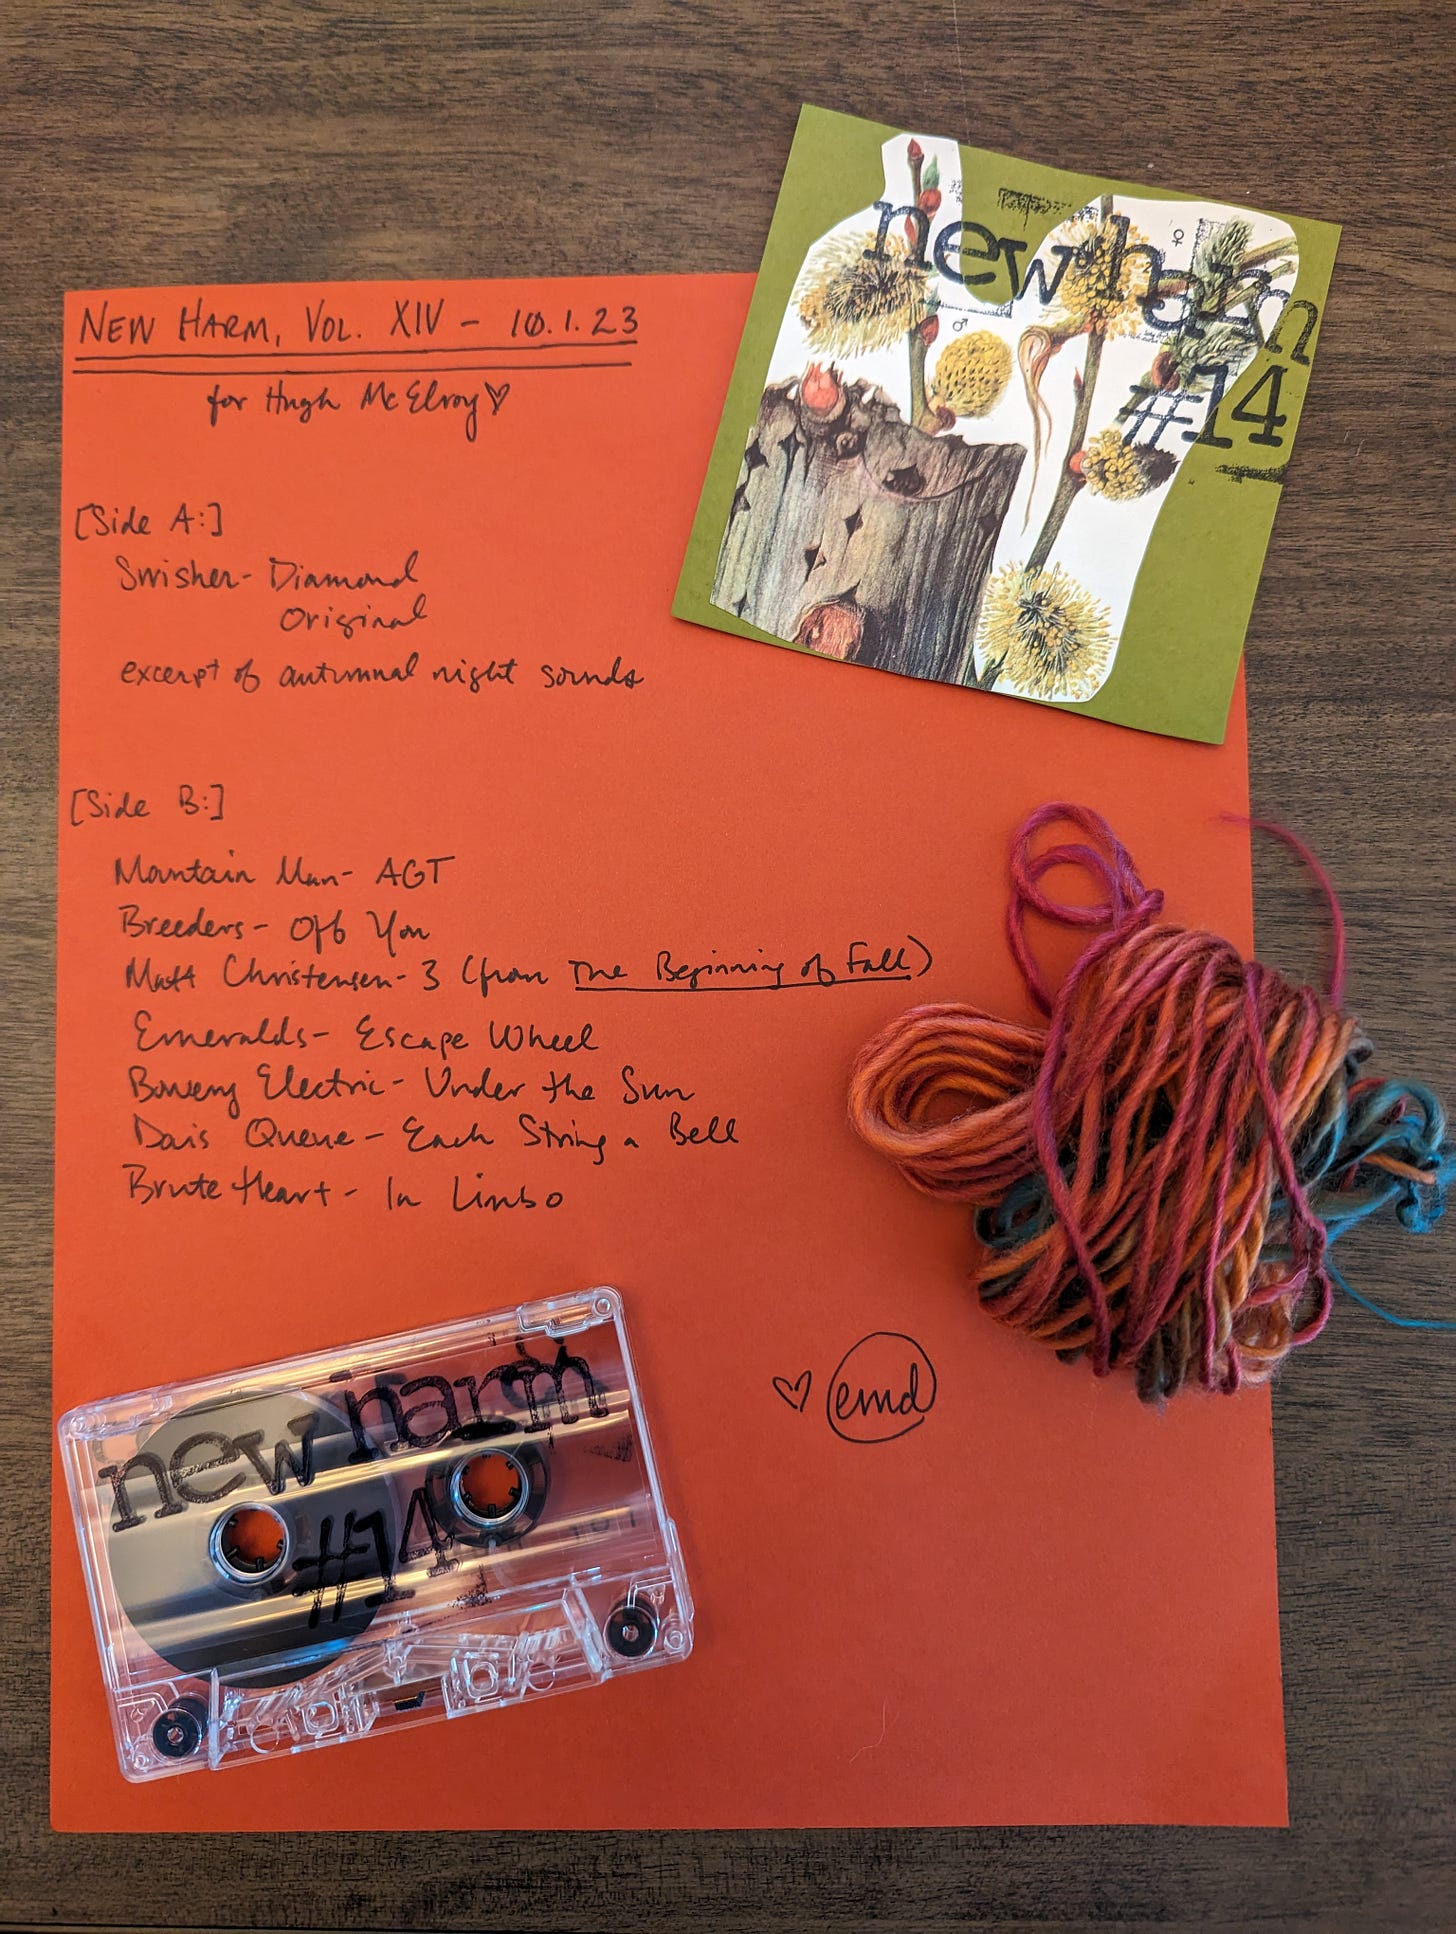 NEW HARM, VOL. XIV - 10.1.23
for Hugh McElroy ♡
new harm
♀
♂
#14
[Side A:]
Swisher- Diamond
Original
excerpt of autumnal night sounds
[Side B:]
Mountain Man- AGT
Breeders- Off You
Matt Christensen- 3 (from The Beginning of Fall)
Emeralds- Escape Wheel
Bowery Electric- Under the Sun
Dais Queue- Each String a Bell
Brute Heart- In Limbo
♡ emd
new harm
#14